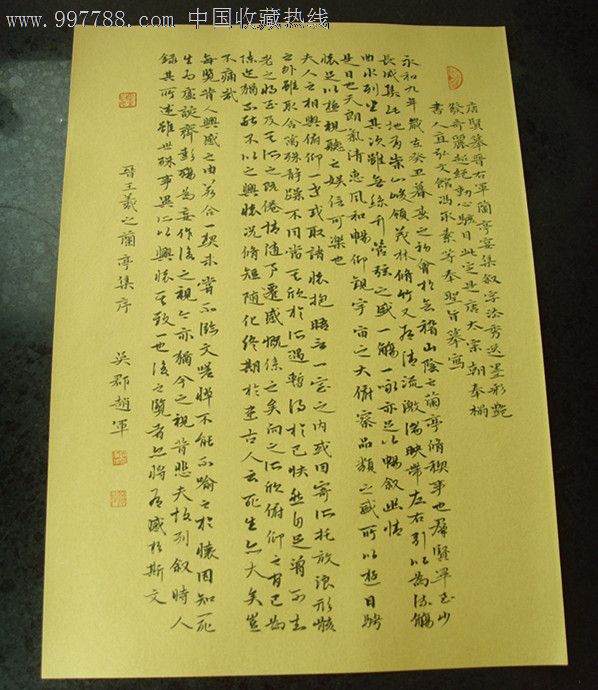 www.997788.com 中国收藏热线
唐賢摹晉右軍蘭亭宴集敘字法秀逸墨彩艷
發奇麗超絕動心駭目此定是唐太宗朝奉榻
書人直弘文館馮承素等奉聖旨摹寫
永和九年歲在癸丑暮春之初會於會稽山陰之蘭亭脩稧事也群賢畢至少
長咸集此地有崇山峻領茂林脩竹又有清流激湍映帶左右引以為流觴
曲水列坐其次雖無絲竹管弦之盛一觴一詠亦足以暢敘幽情
是日也天朗氣清惠風和暢仰觀宇宙之大俯察品類之盛所以遊目騁
懷足以極視聽之娛信可樂也
夫人之相與俯仰一世或取諸懷抱晤言一室之內或因寄所托放浪形骸
之外雖取舍萬殊靜躁不同當其欣於所遇暫得於己快然自足曾不知
老之將至及其所之既倦情隨事遷感慨係之矣向之所欣俯仰之間已為
陳迹猶不能不以之興懷況脩短隨化終期於盡古人云死生亦大矣豈
不痛哉
每覽昔人興感之由若合一契未嘗不臨文嗟悼不能不喻之於懷固知一死
生為虛誕齊彭殤為妄作後之視今亦猶今之視昔悲夫故列敘時人
錄其所述雖世殊事異所以興懷其致一也後之覽者亦將有感於斯文
晉王羲之蘭亭集序 吳郡趙軍